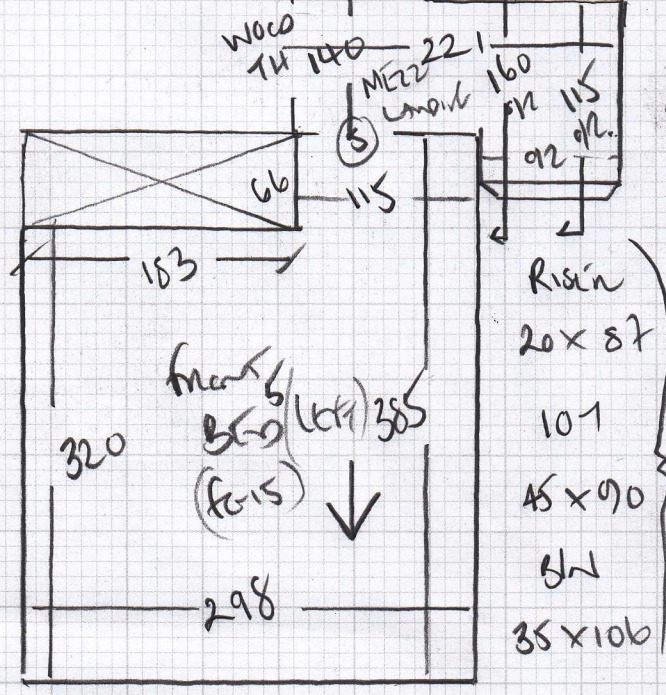 WOOD
TH 140
221
MEZZ
LANDING
160
115
92
S
66
115
183
Risin
20 x 87
101
45 x 90
35 x 106
Front
BED
(Left) 385
320
298